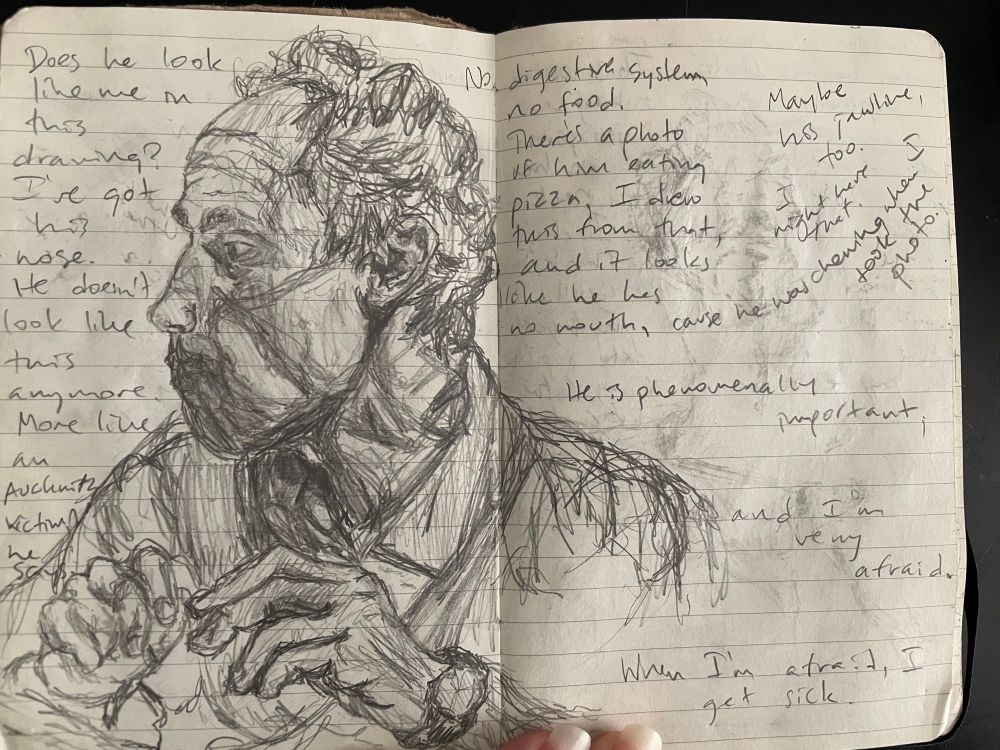 Does he look
like me in
this
drawing?
I've got
his
nose.
He doesn't
look like
this
anymore.
More like
an
Auchwitz
victim,
he
says
No digestive system,
no food.
There's a photo
of him eating
pizza, I drew
this from that,
and it looks
like he has
no mouth, cause he was chewing when I
took the
photo.
Maybe
his jawline,
too.
I
might have
that.
He is phenomenally
important,
and I'm
very
afraid.
When I'm afraid, I
get sick.